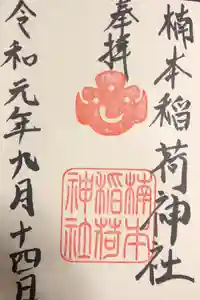 楠本稲荷神社
奉拝
楠本
稲荷
神社
令和元年九月十四日